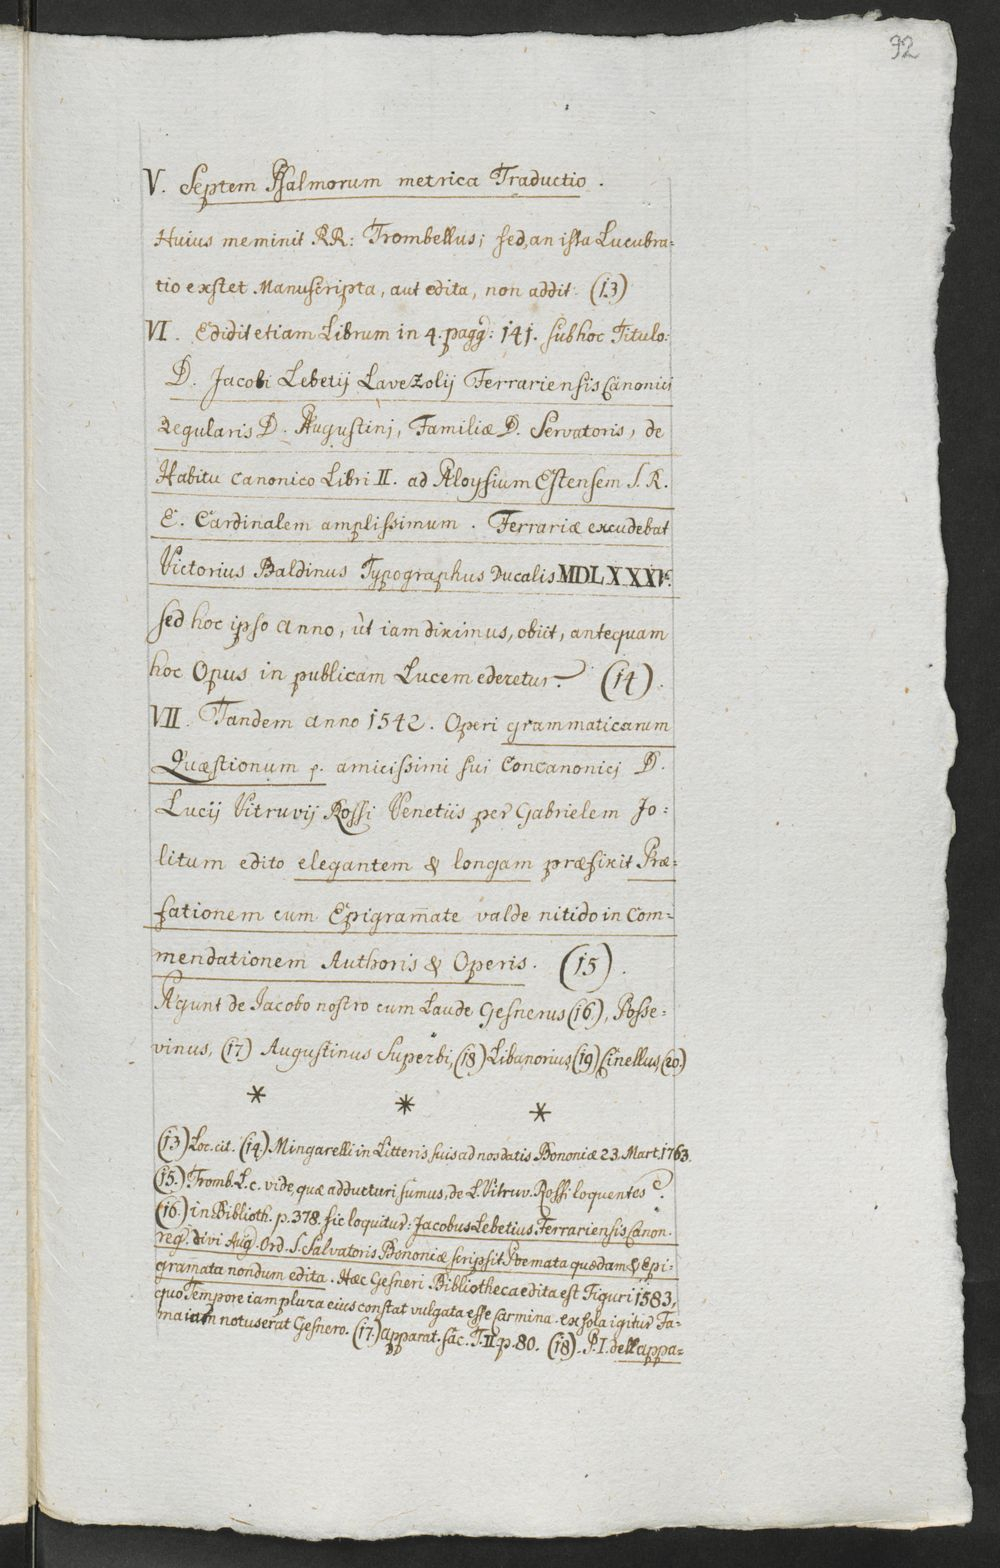 92
V. Septem Psalmorum metrica Traductio.
Huius meminit RR: Trombellus; sed, an ista Lucubra=
tio exstet Manuscripta, aut edita, non addit. (13)
VI. Edidit etiam Librum in 4. pagg: 141. sub hoc Titulo:
D. Jacobi Lebetij Lavezolij Ferrariensis Canonici
Regularis D. Augustinj, Familiæ D. Servatoris, de
Habitu Canonico Libri II. ad Aloysium Estensem S. R.
E. Cardinalem amplissimum. Ferrariæ excudebat
Victorius Baldinus Typographus Ducalis MDLXXXV.
sed hoc ipso Anno, ut iam diximus, obiit, antequam
hoc Opus in publicam Lucem ederetur. (14).
VII. Tandem anno 1542. Operi grammaticarum
Quæstionum p. amicissimi sui Concanonicj D.
Lucij Vitruvij Rossi Venetiis per Gabrielem Jo:
litum edito elegantem & longam præfixit Præ=
fationem cum Epigram̄ate valde nitido in Com=
mendationem Authoris & Operis. (15).
Agunt de Jacobo nostro cum Laude Gesnerus (16), Posse=
vinus, (17) Augustinus Superbi, (18) Libanorius, (19) Cinellus, (20)
* * *
(13) Loc. cit. (14) Mingarelli in Litteris suis ad nos datis Bononiæ 23. Mart. 1763.
(15.) Tromb. L. c. vide, quæ adducturi sumus, de L. Vitruv. Rossi loquentes.
(16) in Biblioth. p. 378. sic loquitur: Jacobus Lebetius Ferrariensis Canon.
reg. divi Aug. Ord. S. Salvatoris Bononiæ scripsit Poemata quædam & Epi=
gramata nondum edita. Hæc Gesneri Bibliotheca edita est Tiguri 1583,
quo Tempore iam plura eius constat vulgata esse Carmina. ex sola igitur Fa=
ma iam notus erat Gesnero. (17.) apparat. sac. T. II. p. 80. (18). P. I. dell'appa=